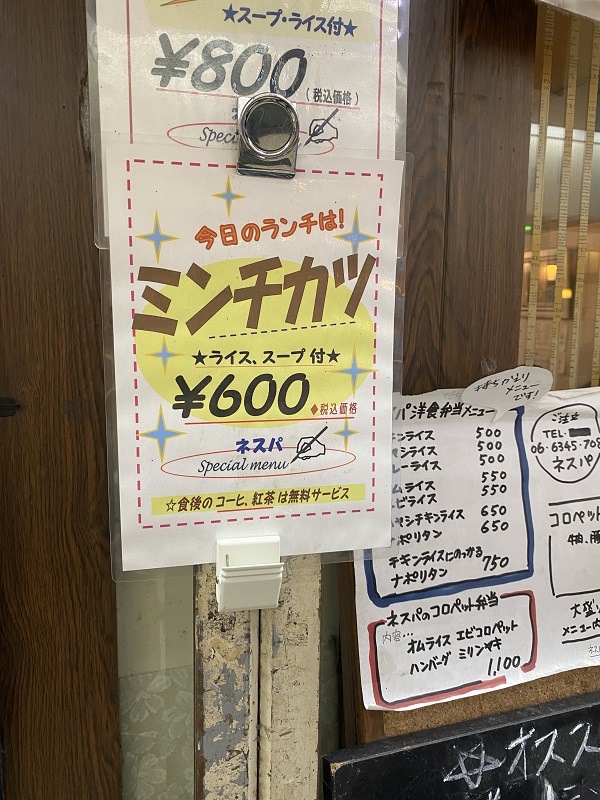 ★スープ・ライス付★
¥800
(税込価格)
Speci
今日のランチは!
ミンチカツ
★ライス、スープ付★
¥600
◆税込価格
ネスパ
Special menu
☆食後のコーヒ、紅茶は無料サービス
お持ちかえり
メニュー
です!
パ洋食弁当メニュー
ンライス 500
シライス 500
レーライス 500
ムライス 550
ビライス 550
ヤシチキンライス 650
ポリタン 650
チキンライスにのっかる
ナポリタン 750
ネスパのコロペット弁当
内容…
オムライス エビコロペット
ハンバーグ ミリンヤキ
1,100
ご注文
TEL.
06-6345-708
ネスパ
コロペット
大盛
メニュー内
オスス